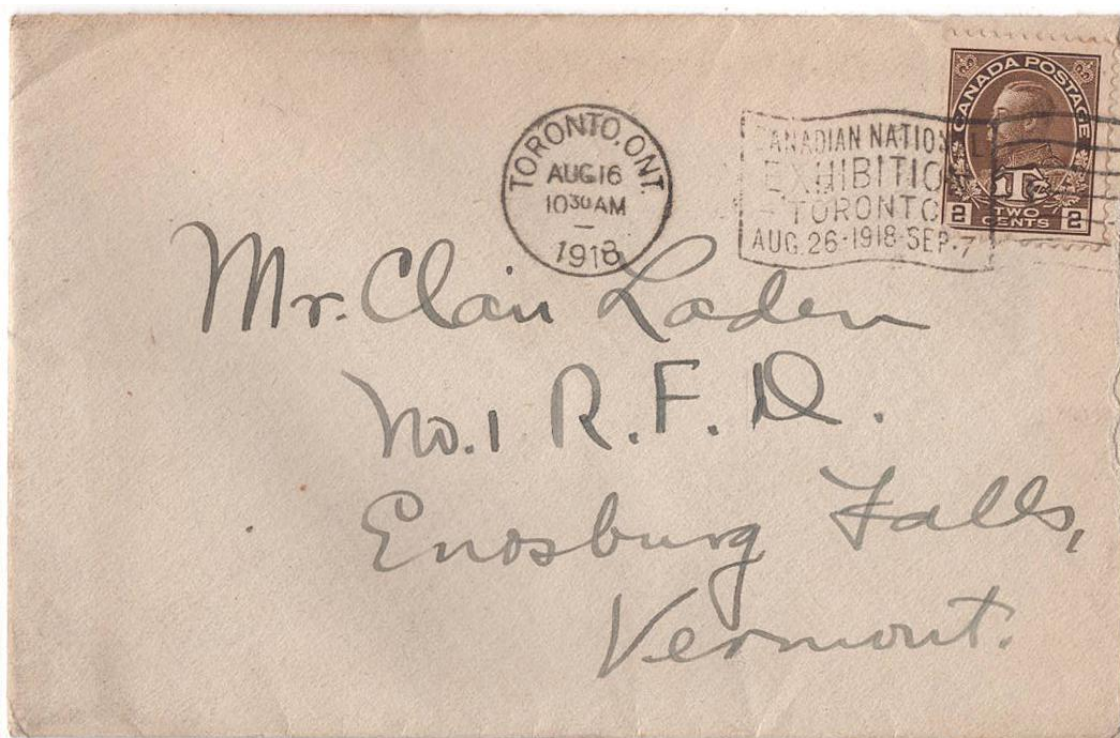 TORONTO, ONT.
AUG 16
10 30 AM
1918
CANADIAN NATIONAL
EXHIBITION
TORONTO
AUG. 26-1918-SEP. 7
CANADA POSTAGE
1Tc
2 TWO CENTS 2
Mr. Clair Laden
No. 1 R. F. D.
Enosburg Falls,
Vermont.